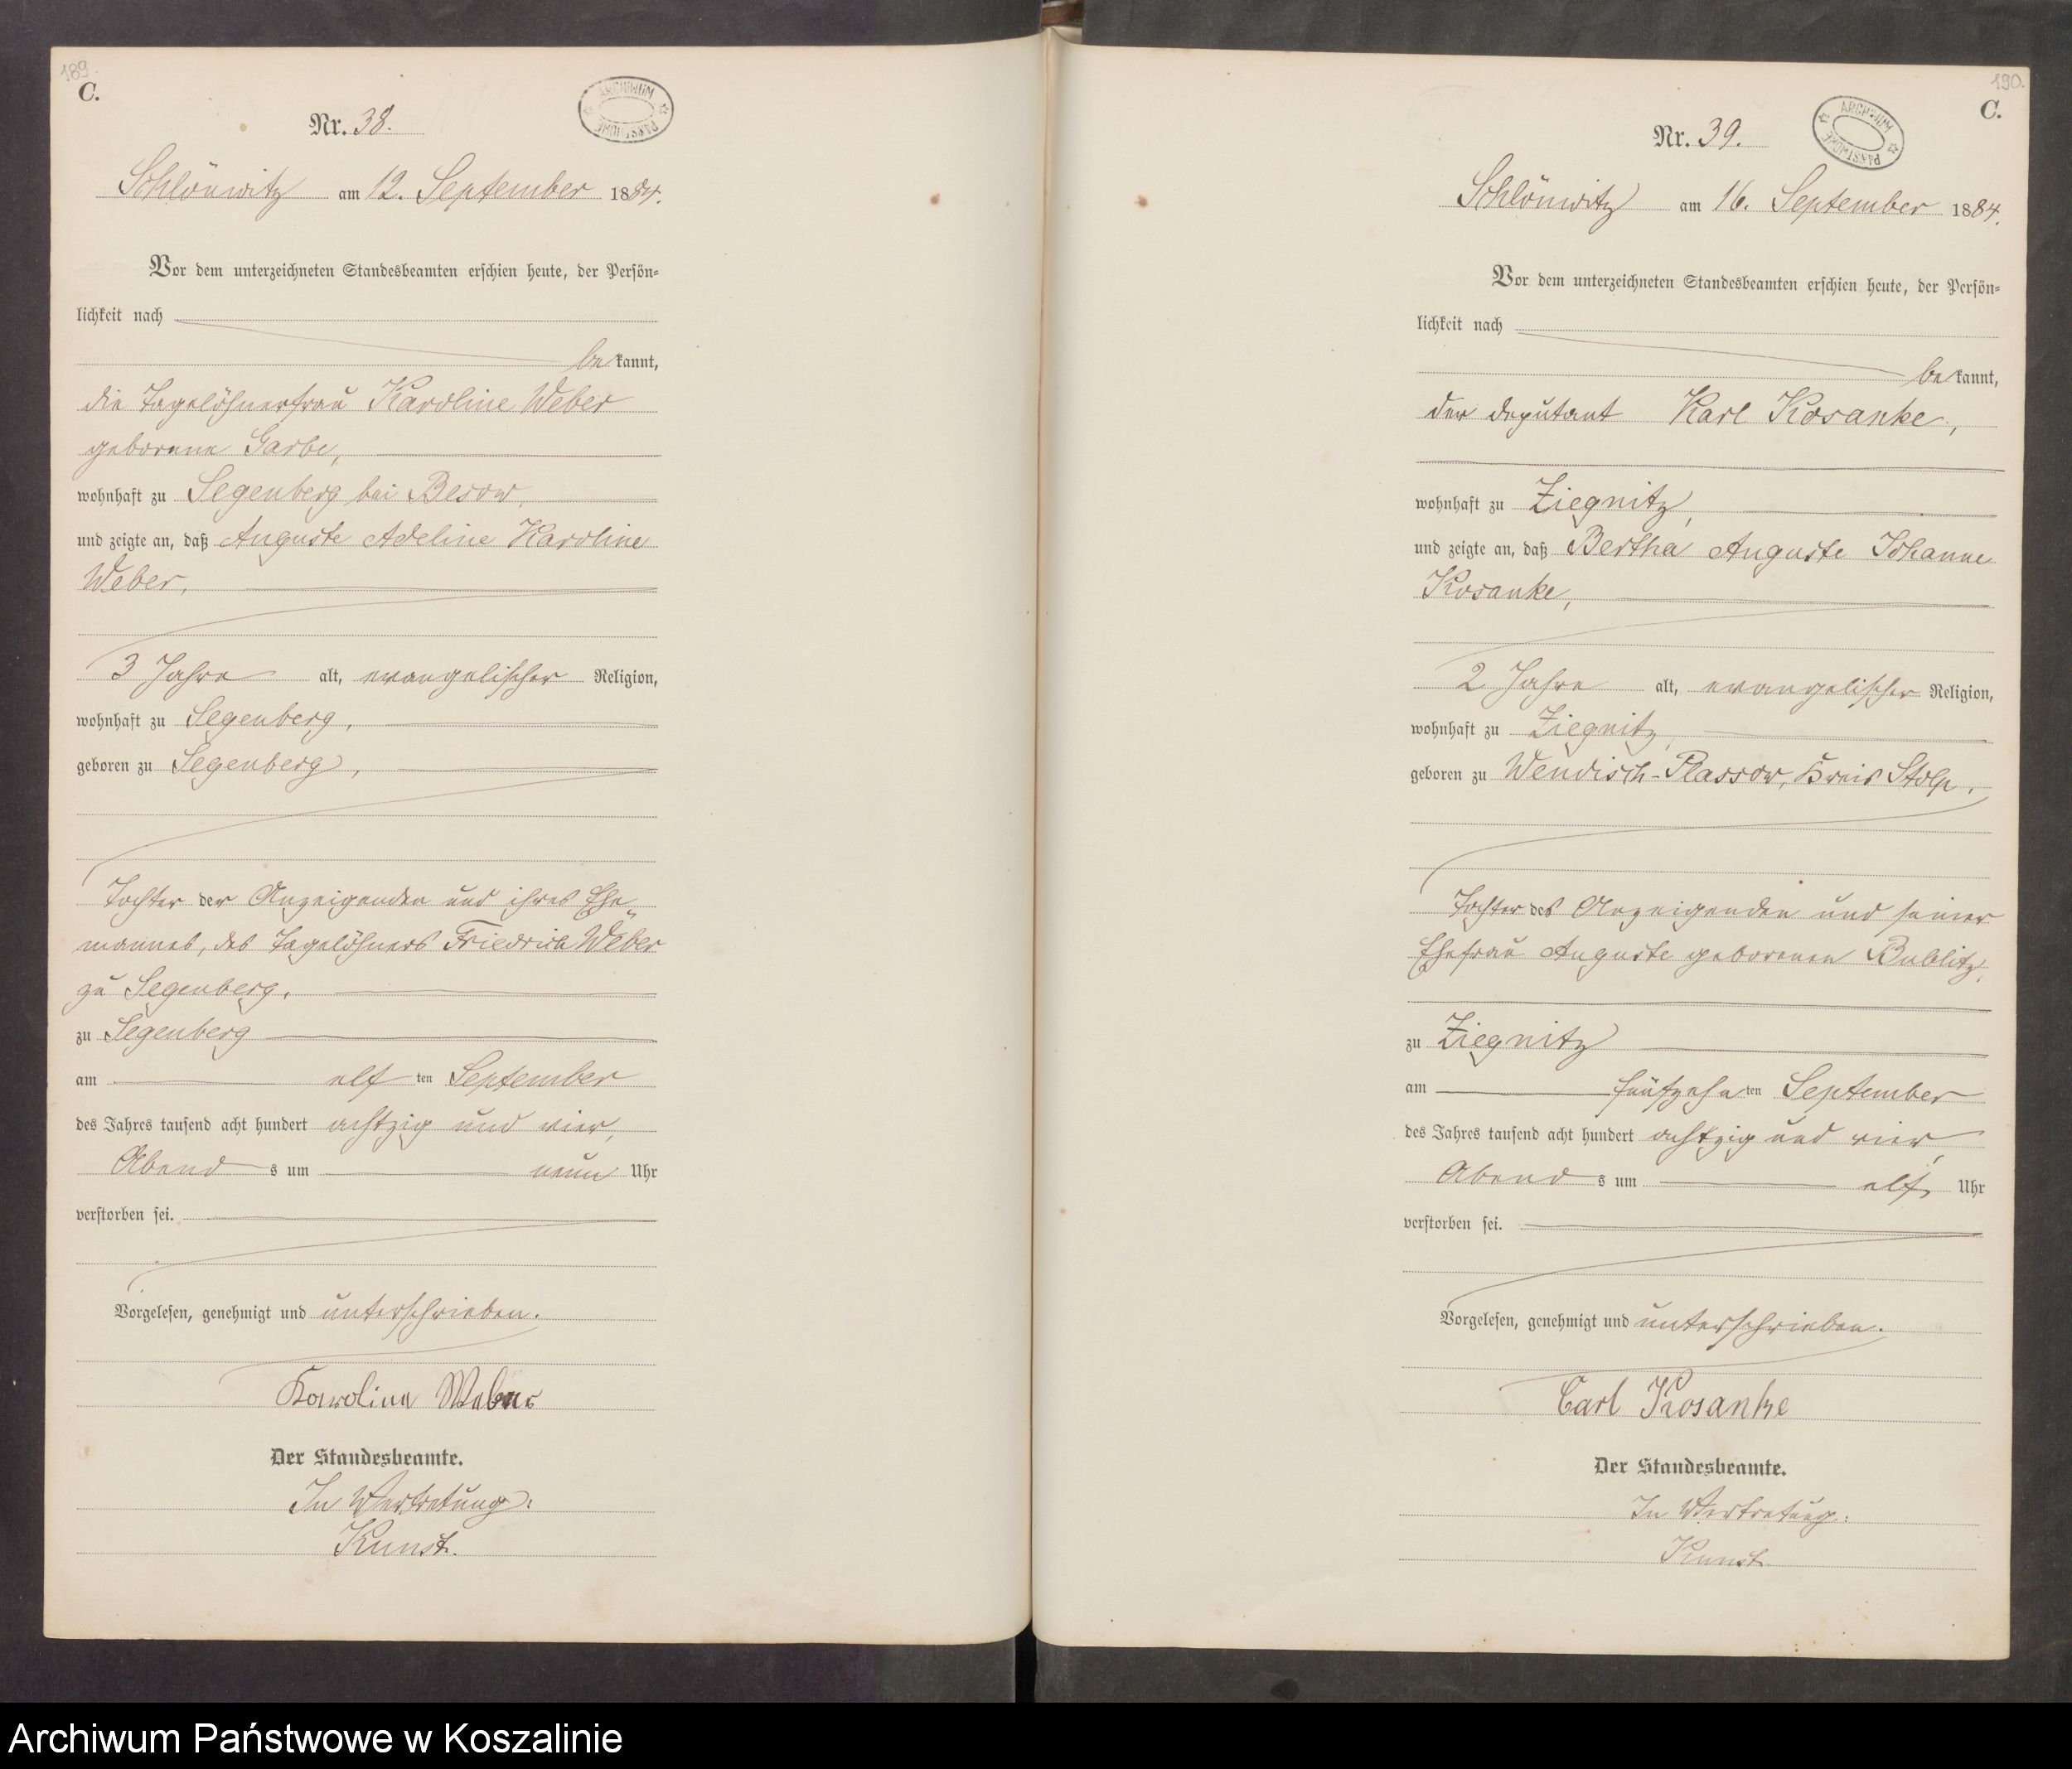 189.
C.
ARCHIWUM PAŃSTWOWE
Nr. 38.
Schlönwitz am 12. September 1884.
Vor dem unterzeichneten Standesbeamten erschien heute, der Persön-
lichkeit nach
bekannt,
die Tagelöhnerfrau Karoline Weber
geborene Garbe,
wohnhaft zu Segenberg bei Besow,
und zeigte an, daß Auguste Adeline Karoline
Weber,
3 Jahre alt, evangelischer Religion,
wohnhaft zu Segenberg,
geboren zu Segenberg,
Tochter der Anzeigenden und ihres Ehe-
mannes, des Tagelöhners Friedrich Weber
zu Segenberg,
zu Segenberg
am elften September
des Jahres tausend acht hundert achtzig und vier,
Abends um neun Uhr
verstorben sei.
Vorgelesen, genehmigt und unterschrieben.
Karoline Weber
Der Standesbeamte.
In Vertretung:
Kunst.
190.
C.
ARCHIWUM PAŃSTWOWE
Nr. 39.
Schlönwitz am 16. September 1884.
Vor dem unterzeichneten Standesbeamten erschien heute, der Persön-
lichkeit nach
bekannt,
der Deputant Karl Kosanke,
wohnhaft zu Ziegnitz,
und zeigte an, daß Bertha Auguste Johanne
Kosanke,
2 Jahre alt, evangelischer Religion,
wohnhaft zu Ziegnitz,
geboren zu Wendisch-Plassow, Kreis Stolp,
Tochter des Anzeigenden und seiner
Ehefrau Auguste geborenen Bublitz,
zu Ziegnitz
am fünfzehnten September
des Jahres tausend acht hundert achtzig und vier,
Abends um elf Uhr
verstorben sei.
Vorgelesen, genehmigt und unterschrieben.
Carl Kosanke
Der Standesbeamte.
In Vertretung:
Kunst.
Archiwum Państwowe w Koszalinie